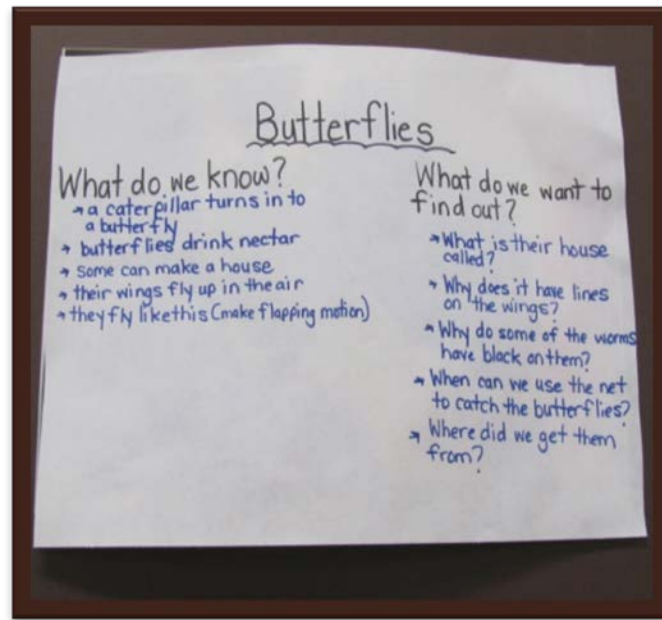 Butterflies
What do we know?
→ a caterpillar turns in to
a butterfly
→ butterflies drink nectar
→ some can make a house
→ their wings fly up in the air
→ they fly like this (make flapping motion)
What do we want to
find out?
→ What is their house
called?
→ Why does it have lines
on the wings?
→ Why do some of the worms
have black on them?
→ When can we use the net
to catch the butterflies?
→ Where did we get them
from?